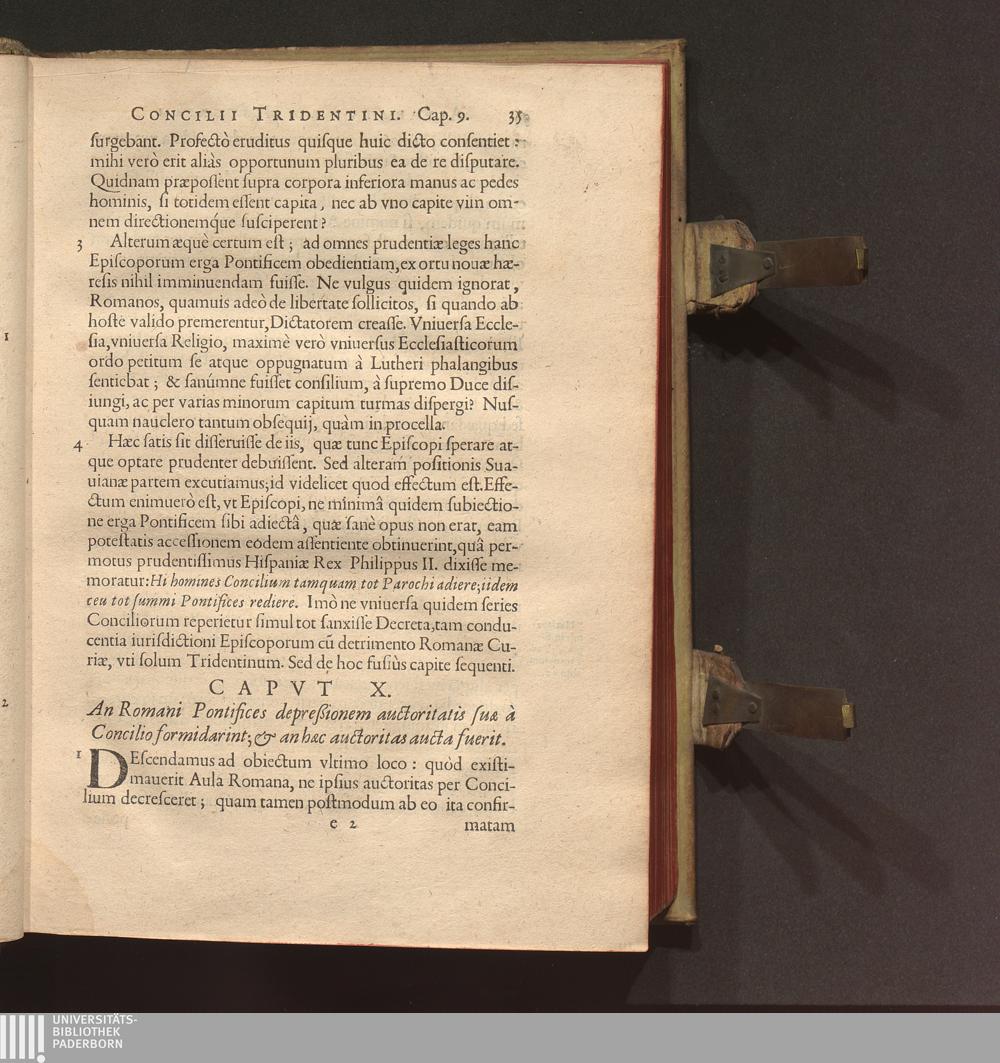 CONCILII TRIDENTINI. Cap. 9. 35
ſurgebant. Profectò eruditus quiſque huic dicto conſentiet:
mihi verò erit aliàs opportunum pluribus ea de re diſputare.
Quidnam præpoſſent ſupra corpora inferiora manus ac pedes
hominis, ſi totidem eſſent capita, nec ab vno capite vim om-
nem directionemq́ue ſuſciperent?
3 Alterum æquè certum eſt; ad omnes prudentiæ leges hanc
Epiſcoporum erga Pontificem obedientiam, ex ortu nouæ hæ-
reſis nihil imminuendam fuiſſe. Ne vulgus quidem ignorat,
Romanos, quamuis adeò de libertate ſollicitos, ſi quando ab
hoſte valido premerentur, Dictatorem creaſſe. Vniuerſa Eccle-
ſia, vniuerſa Religio, maximè verò vniuerſus Eccleſiaſticorum
ordo petitum ſe atque oppugnatum à Lutheri phalangibus
ſentiebat; & ſanúmne fuiſſet conſilium, à ſupremo Duce diſ-
iungi, ac per varias minorum capitum turmas diſpergi? Nuſ-
quam nauclero tantum obſequij, quàm in procella.
4 Hæc ſatis ſit diſſeruiſſe de iis, quæ tunc Epiſcopi ſperare at-
que optare prudenter debuiſſent. Sed alteram poſitionis Sua-
uianæ partem excutiamus; id videlicet quod effectum eſt. Effe-
ctum enimuerò eſt, vt Epiſcopi, ne minimâ quidem ſubiectio-
ne erga Pontificem ſibi adiectâ, quæ ſanè opus non erat, eam
poteſtatis acceſſionem eodem aſſentiente obtinuerint, quâ per-
motus prudentiſſimus Hiſpaniæ Rex Philippus II. dixiſſe me-
moratur: Hi homines Concilium tamquam tot Parochi adiere; iidem
ceu tot ſummi Pontifices rediere. Imò ne vniuerſa quidem ſeries
Conciliorum reperietur ſimul tot ſanxiſſe Decreta, tam condu-
centia iuriſdictioni Epiſcoporum cū detrimento Romanæ Cu-
riæ, vti ſolum Tridentinum. Sed de hoc fuſiùs capite ſequenti.
CAPVT X.
An Romani Pontifices depreßionem auctoritatis ſuæ à
Concilio formidarint; & an hæc auctoritas aucta fuerit.
1 DEſcendamus ad obiectum vltimo loco: quòd exiſti-
mauerit Aula Romana, ne ipſius auctoritas per Conci-
lium decreſceret; quam tamen poſtmodum ab eo ita confir-
e 2 matam
1
2
UNIVERSITÄTS-
BIBLIOTHEK
PADERBORN